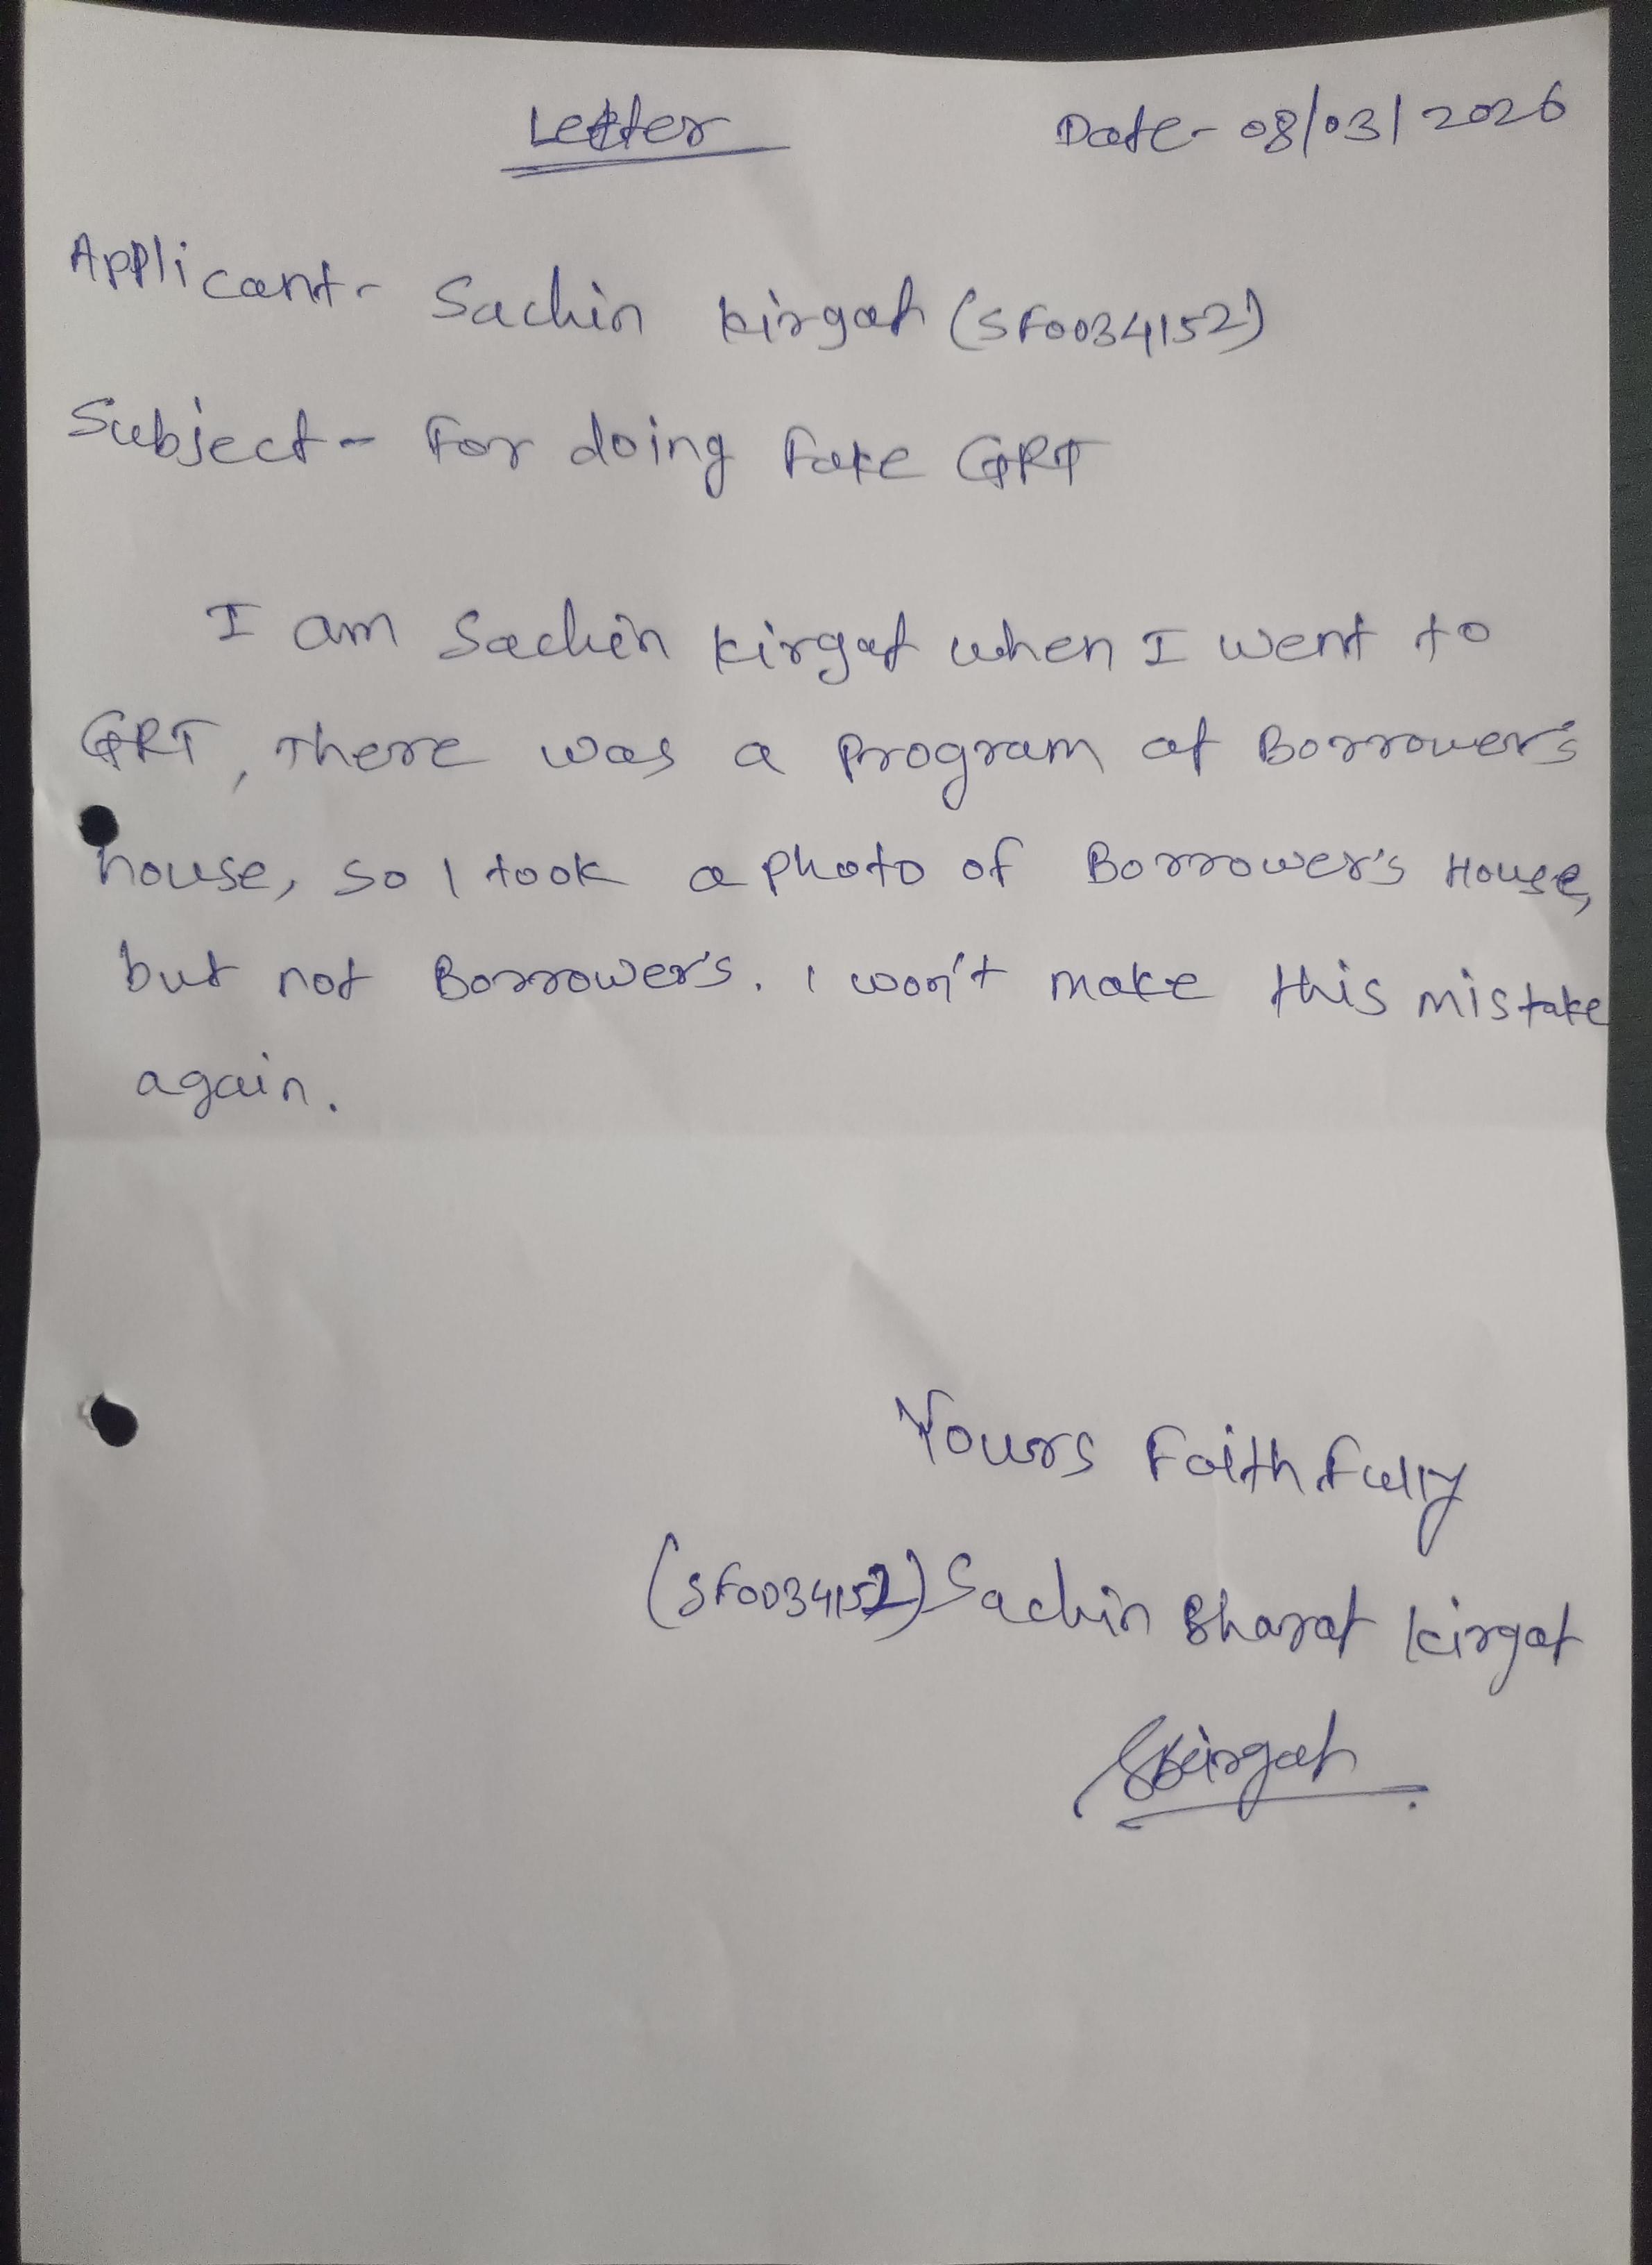 Letter
Date- 08/03/2026
Applicant- Sachin Kirgat (SF0034152)
Subject- For doing Fake GRT
I am Sachin Kirgat when I went to
GRT, There was a Program at Borrower's
house, so I took a photo of Borrower's House,
but not Borrower's. I won't make this mistake
again.
Yours Faithfully
(SF0034152) Sachin Bharat Kirgat
SKirgat